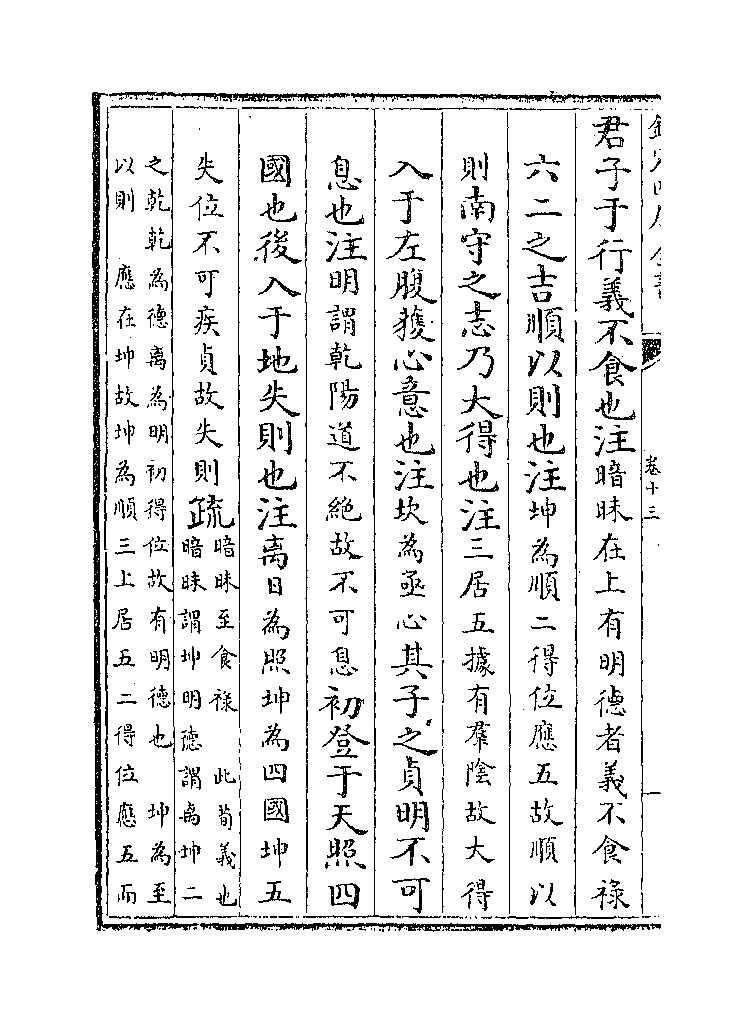 欽定四庫全書
卷十三
一
君子于行義不食也注暗昧在上有明德者義不食祿
六二之吉順以則也注坤為順二得位應五故順以
則南守之志乃大得也注三居五據有羣陰故大得
入于左腹獲心意也注坎為亟心其子之貞明不可
息也注明謂乾陽道不絶故不可息初登于天照四
國也後入于地失則也注离日為照坤為四國坤五
失位不可疾貞故失則疏暗昧至食祿　此荀義也
暗昧謂坤明德謂离坤二
之乾乾為德离為明初得位故有明德也　坤為至
以則　應在坤故坤為順三上居五二得位應五而